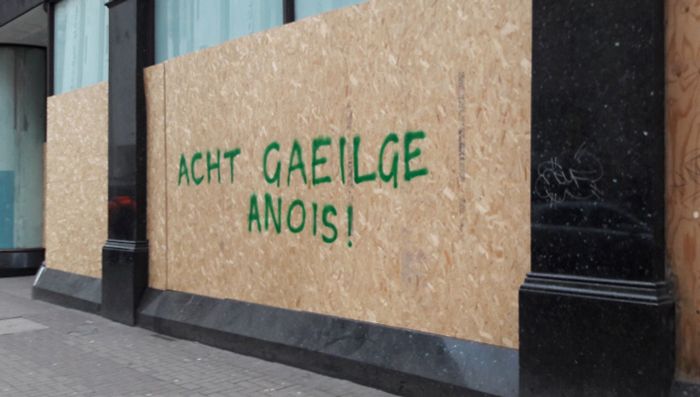 ACHT GAEILGE
ANOIS!